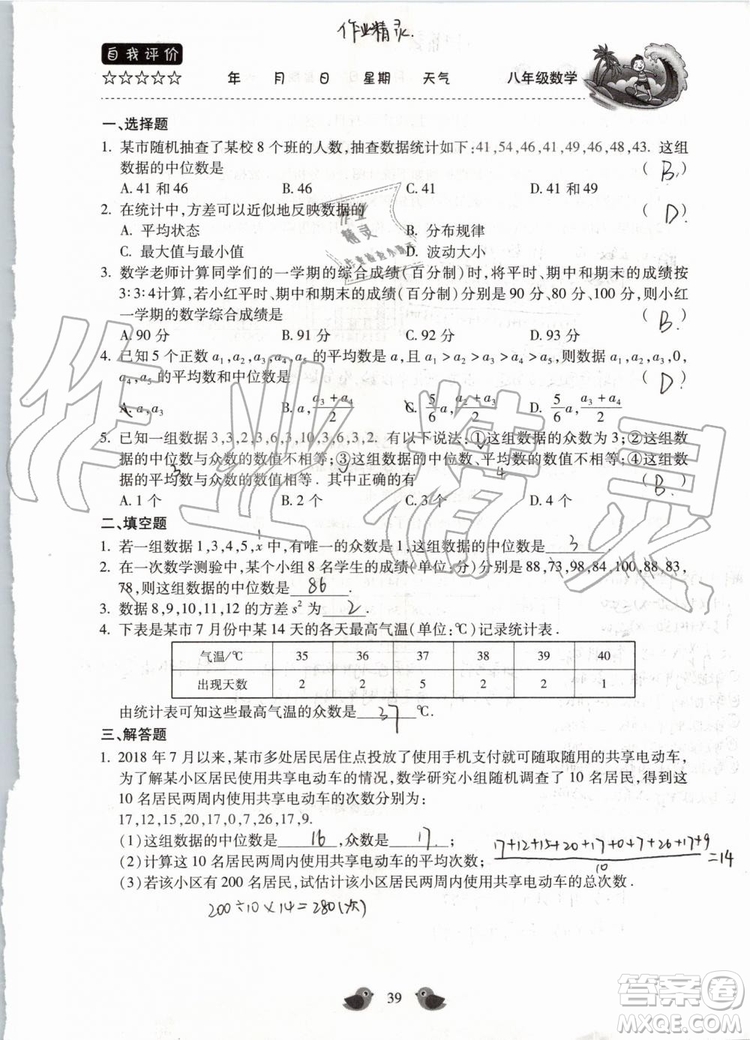 作业精灵
自我评价
☆☆☆☆☆ 年 月 日 星期 天气 八年级数学
一、选择题
1. 某市随机抽查了某校 8 个班的人数,抽查数据统计如下:41,54,46,41,49,46,48,43. 这组
数据的中位数是 ( B. )
A. 41 和 46 B. 46 C. 41 D. 41 和 49
2. 在统计中,方差可以近似地反映数据的 ( D )
A. 平均状态 B. 分布规律
C. 最大值与最小值 D. 波动大小
3. 数学老师计算同学们的一学期的综合成绩(百分制)时,将平时、期中和期末的成绩按
3∶3∶4计算,若若小红平时、期中和期末的成绩(百分制)分别是 90 分、80 分、100 分,则小红
一学期的数学综合成绩是 ( B. )
A. 90 分 B. 91 分 C. 92 分 D. 93 分
4. 已知 5 个正数 a₁,a₂,a₃,a₄,a₅ 的平均数是 a,且 a₁>a₂>a₃>a₄>a₅,则数据 a₁,a₂,a₃,0,
a₄,a₅ 的平均数和中位数是 ( D )
A. a,a₃ B. a,(a₃+a₄)/2 C. 5/6 a,(a₃+a₄)/2 D. 5/6 a,(a₂+a₃)/2
5. 已知一组数据 3,3,2,3,6,3,10,3,6,3,2. 有以下说法:①这组数据的众数为 3;②这组数
据的中位数与众数的数值不相等;③这组数据的中位数、平均数的数值相等;④这组数据的
平均数与众数的数值相等. 其中正确的有 ( B. )
A. 1 个 B. 2 个 C. 3 个 D. 4 个
二、填空题
1. 若一组数据 1,3,4,5,x 中,有唯一的众数是 1,这组数据的中位数是 3 .
2. 在一次数学测验中,某个小组 8 名学生的成绩(单位:分)分别是 88,73,98,84,100,88,83,
78,则这组数据的中位数是 86 .
3. 数据 8,9,10,11,12 的方差 s² 为 2 .
4. 下表是某市 7 月份中某 14 天的各天最高气温(单位:℃)记录统计表.
气温/℃ 35 36 37 38 39 40
出现天数 2 2 5 2 2 1
由统计表可知这些最高气温的众数是 37 ℃.
三、解答题
1. 2018 年 7 月以来,某市多处居民居住点投放了使用手机支付就可随取随用的共享电动车,
为了解某小区居民使用共享电动车的情况,数学研究小组随机调查了 10 名居民,得到这
10 名居民两周内使用共享电动车的次数分别为:
17,12,15,20,17,0,7,26,17,9.
(1)这组数据的中位数是 16 ,众数是 17 ;
(2)计算这 10 名居民两周内使用共享电动车的平均次数; (17+12+15+20+17+0+7+26+17+9)/10=14
(3)若该小区有 200 名居民,试估计该小区居民两周内使用共享电动车的总次数.
200÷10×14=280(次)
39
答案圈
MXQE.COM